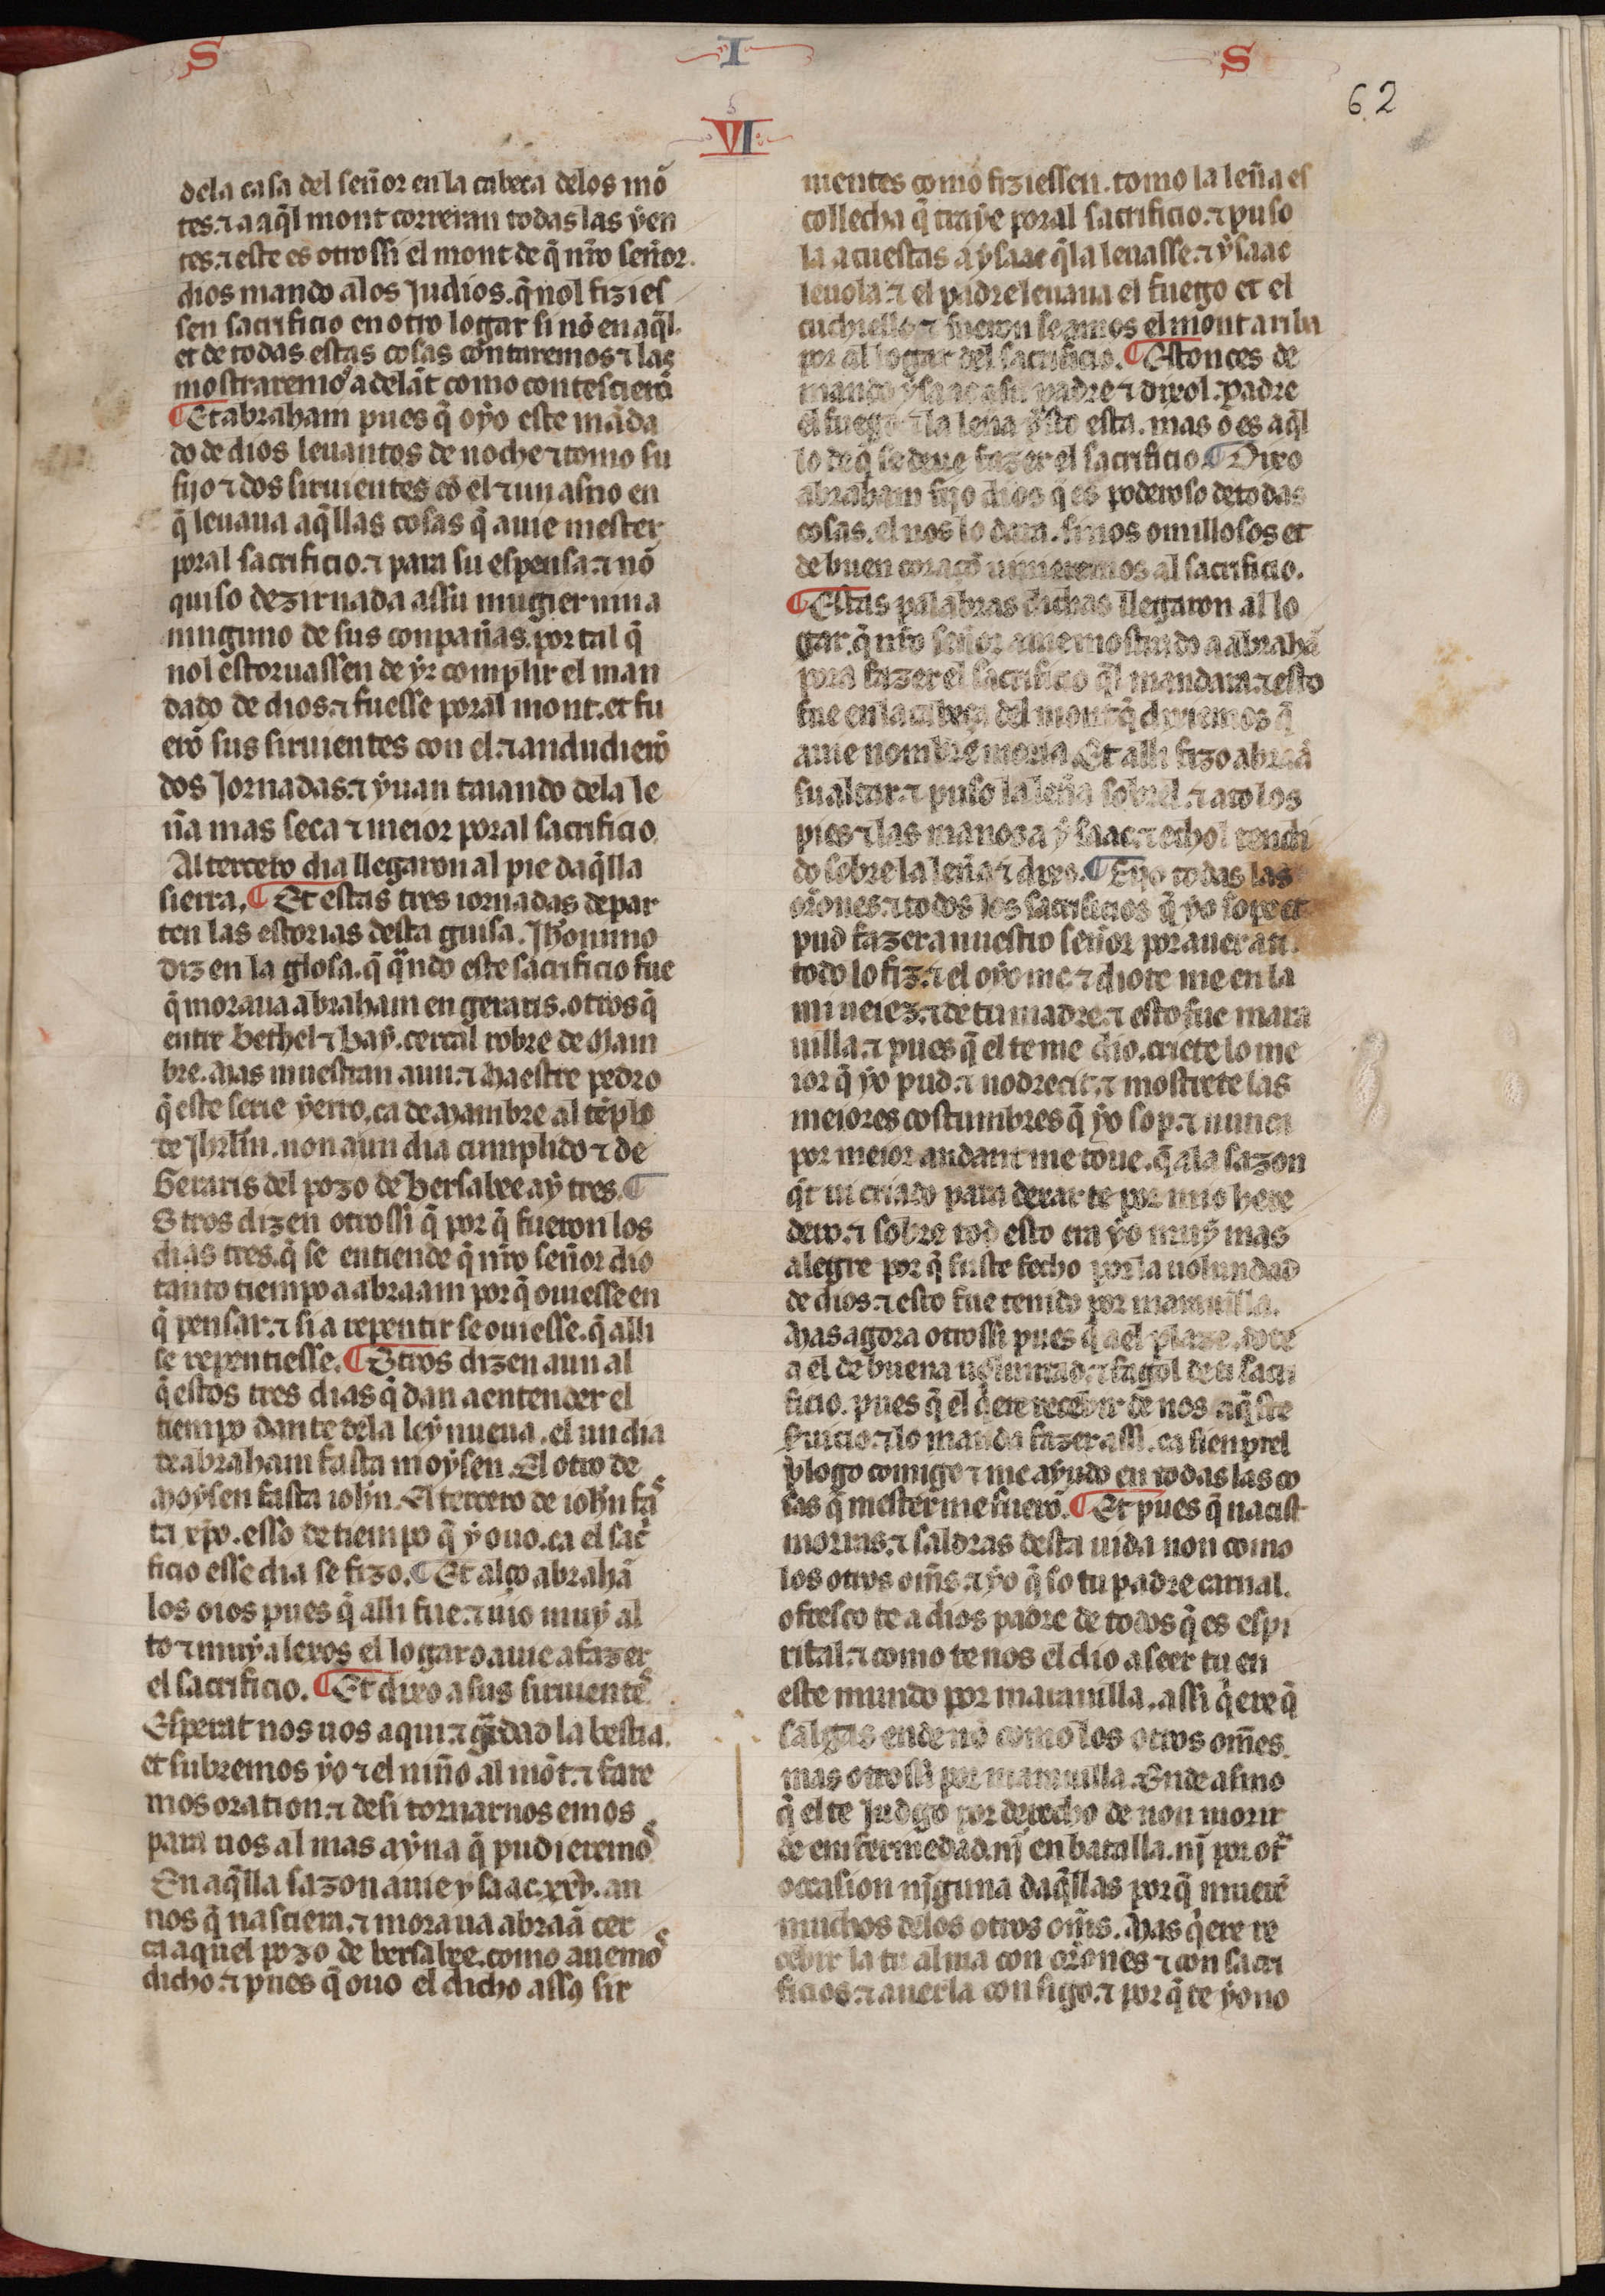 S I S
62
VI
dela casa del señor en la cabeça delos mõ
tes. ⁊ a aq̃l mont correran todas las yen
tes. ⁊ este es otrossi el mont de q̃ nr̃o señor.
dios mando alos Judios. q̃ nol fizies
sen sacrificio en otro logar si nõ en aq̃l.
et de todas estas cosas contaremos ⁊ las
mostraremoꝰ adelãt como contescierõ
¶ Et abraham pues q̃ oyo este mãda
do de dios leuantos de noche ⁊ tomo su
fijo ⁊ dos siruientes cõ el ⁊ un asno en
q̃ leuaua aq̃llas cosas q̃ auie mester
poral sacrificio. ⁊ para su espensa. ⁊ nõ
quiso dezir nada assu mugier nin a
ninguno de sus conpañas. por tal q̃
nol estoruassen de yr complir el man
dado de dios. ⁊ fuesse poral mont. et fu
erõ sus siruientes con el. ⁊ andudierõ
dos Jornadas. ⁊ yuan taiando dela le
ña mas seca ⁊ meior poral sacrificio
Al tercero dia llegaron al pie daq̃lla
sierra. ¶ Et estas tres iornadas depar
ten las estorias desta guisa. Jheronimo
diz en la glosa. q̃ q̃ndo este sacrificio fue
q̃ moraua abraham en geraris. otros q̃
entre Bethel ⁊ Hay. cercal robre de Mam
bre. Mas muestran aun. ⁊ Maestre pedro
q̃ este serie yerro. ca de Mambre al tẽplo
de Jhrlm̃. non a un dia cumplido ⁊ de
Geraris del pozo de Bersabee ay tres. ¶
Otros dizen otrossi q̃ por q̃ fueron los
dias tres. q̃ se entiende q̃ nr̃o señor dio
tanto tiempo a abraam por q̃ ouiesse en
q̃ pensar. ⁊ si a repentir se ouiesse. q̃ alli
se repentiesse. ¶ Otros dizen aun al
q̃ estos tres dias q̃ dan a entender el
tiempo dante dela ley nueua. el un dia
de abraham fasta moysen. El otro de
Moysen fasta iohñ. El tercero de iohñ fas
ta xp̃o. esso de tiempo q̃ y ouo. ca el sac̃
ficio esse dia se fizo. ¶ Et alço abrahã
los oios pues q̃ alli fue. ⁊ uio muy al
to ⁊ muy alexos el logar o auie a fazer
el sacrificio. ¶ Et dixo a sus siruientes
Esperat nos uos aqui. ⁊ gũdad la bestia.
et subremos yo ⁊ el niño al mõt. ⁊ fare
mos oration. ⁊ desi tornarnos emos
para uos al mas ayna q̃ pudieremos
En aq̃lla sazon auie ysaac .xxv. an
nos q̃ nasciera. ⁊ moraua abraã cer
ca aquel pozo de bersabee. como auemos
dicho. ⁊ pues q̃ ouo el dicho assꝯ sir
uientes como fiziessen. tomo la leña es
collecha q̃ traye poral sacrificio. ⁊ puso
la acuestas a ysaac q̃la leuasse. ⁊ ysaac
leuola. ⁊ el padre leuaua el fuego et el
cuchiello. ⁊ fueron se amos el mont ariba
por al logar del sacrificio. ¶ Estonces de
mando ysaac a su padre ⁊ dixol. Padre
el fuego ⁊ la leña presto esta. mas o es aq̃l
lo de q̃ se deue fazer el sacrificio. ¶ Dixo
abraham fijo dios q̃ es poderoso de todas
cosas. el nos lo dara. si nos omillosos et
de buen coraçõ uinieremos al sacrificio.
¶ Estas palabras dichas llegaron al lo
gar. q̃ nr̃o señor auie mostrado a abrahã
pora fazer el sacrificio q̃l mandara. ⁊ esto
fue en la cabeça del mont q̃ dixiemos q̃
auie nombre moria. Et alli fizo abraã
su altar. ⁊ puso la leña sobrel. ⁊ ato los
pies ⁊ las manos a ysaac. ⁊ echol tendi
do sobre la leña ⁊ dixo. ¶ Fijo todas las
orõnes. ⁊ todos los sacrificios q̃ yo sope et
pud fazer a nuestro señor por auer a ti.
todo lo fiz. ⁊ el oyo me ⁊ diote me en la
mi ueiez. ⁊ de tu madre. ⁊ esto fue mara
uilla. ⁊ pues q̃ el te me dio. criete lo me
ior q̃ yo pud. ⁊ nodrecit. ⁊ mostrete las
meiores costumbres q̃ yo sop. ⁊ nunca
por meior andant me toue. q̃ ala sazon
q̃t ui criado para dexar te por mio here
dero. ⁊ sobre tod esto era yo muy mas
alegre por q̃ fuste fecho por la uoluntad
de dios. ⁊ esto fue tenido por marauilla.
Mas agora otrossi pues q̃ a el plaze. do te
a el de buena uoluntad. ⁊ fagol de ti sacri
ficio. pues q̃ el q̃ere recebir de nos aq̃ste
seruicio. ⁊ lo manda fazer assi. ca sienprel
plogo comigo ⁊ me ayudo en todas las co
sas q̃ mester me fuerõ. ¶ Et pues q̃ nacist
morras. ⁊ saldras desta uida non como
los otros om̃s. ⁊ yo q̃ so tu padre carnal.
ofresco te a dios padre de todos q̃ es espi
rital. ⁊ como te nos el dio a seer tu en
este mundo por marauilla. assi q̃ere q̃
salgas ende nõ como los otros om̃es.
mas otrossi por marauilla. Onde asmo
q̃ el te Judgo por derecho de non morir
de enfermedad. nj̃ en batalla. nj̃ por otr̃
occasion nj̃guna daq̃llas por q̃ muerẽ
muchos delos otros om̃s. Mas q̃ere re
cebir la tu alma con orõnes ⁊ con sacri
ficios. ⁊ auerla consigo. ⁊ por q̃ te yo no